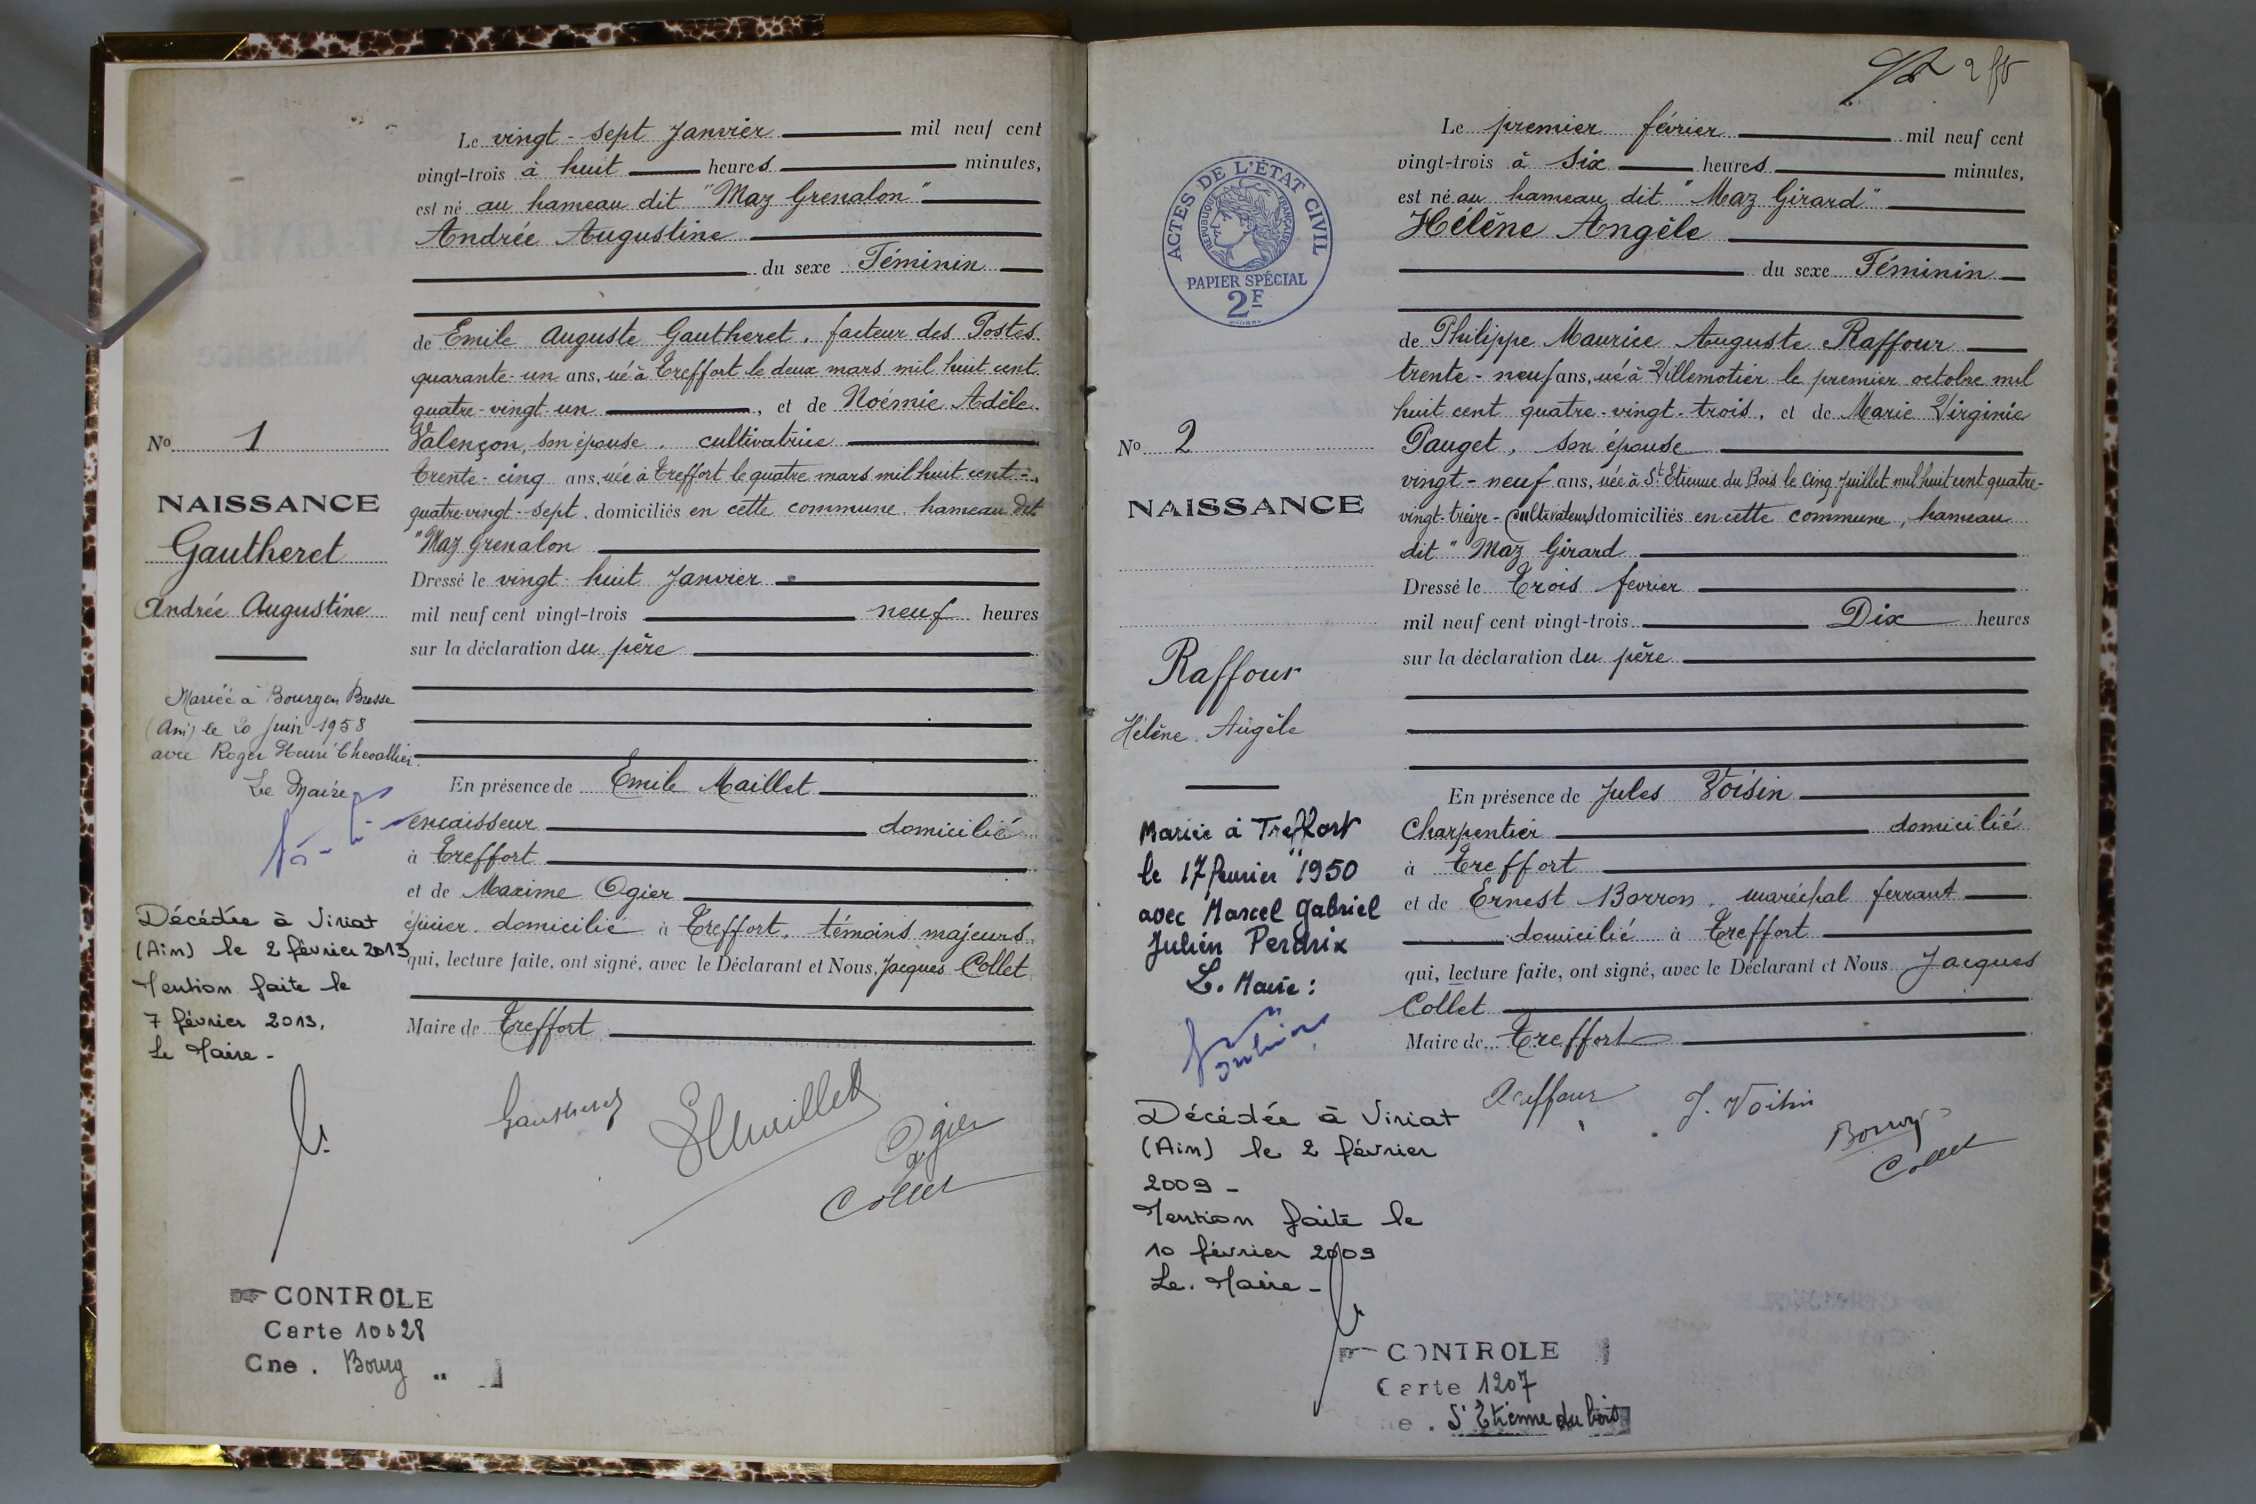 Le vingt-sept Janvier mil neuf cent
vingt-trois à huit heures minutes,
est né au hameau dit "Maz Grenalon"
Andrée Augustine
du sexe Féminin
de Emile Auguste Gautheret, facteur des Postes
quarante-un ans, né à Treffort le deux mars mil huit cent
quatre-vingt-un, et de Noémie Adèle
Valençon, son épouse. cultivatrice
trente-cinq ans, née à Treffort le quatre mars mil huit cent-
quatre-vingt-sept, domiciliés en cette commune hameau dit
"Maz Grenalon
Dressé le vingt-huit Janvier
mil neuf cent vingt-trois neuf heures
sur la déclaration du père
En présence de Emile Maillet
encaisseur domicilié
à Treffort
et de Maxime Ogier
épicier domicilié à Treffort, témoins majeurs
qui, lecture faite, ont signé, avec le Déclarant et Nous, Jacques Collet
Maire de Treffort
Gautheret
EMaillet
Ogier
Collet
No 1
NAISSANCE
Gautheret
Andrée Augustine
Mariée à Bourg en Bresse
(Ain) le 20 Juin 1958
avec Roger Henri Chevallier.
Le Maire
Décédée à Viriat
(Ain) le 2 février 2013
Mention faite le
7 février 2013.
Le Maire -
CONTROLE
Carte 10328
Cne. Bourg
2
ACTES DE L'ÉTAT CIVIL
RÉPUBLIQUE FRANÇAISE
PAPIER SPÉCIAL
2F
Le premier février mil neuf cent
vingt-trois à six heures minutes,
est né au hameau dit "Maz Girard"
Hélène Angèle
du sexe Féminin
de Philippe Maurice Auguste Raffour
trente-neuf ans, né à Villemotier le premier octobre mil
huit cent quatre-vingt-trois, et de Marie Virginie
Pauget, son épouse
vingt-neuf ans, née à St Etienne du Bois le cinq Juillet mil huit cent quatre-
vingt-treize- cultivateurs domiciliés en cette commune, hameau
dit "Maz Girard
Dressé le Trois février
mil neuf cent vingt-trois Dix heures
sur la déclaration du père
En présence de Jules Voisin
Charpentier domicilié
à Treffort
et de Ernest Borron, maréchal ferrant
domicilié à Treffort
qui, lecture faite, ont signé, avec le Déclarant et Nous Jacques
Collet
Maire de Treffort
Raffour
J. Voisin
Borron
Collet
No 2
NAISSANCE
Raffour
Hélène Angèle
Mariée à Treffort
le 17 février 1950
avec Marcel Gabriel
Julien Perdrix
Le Maire:
Décédée à Viriat
(Ain) le 2 février
2009 -
Mention faite le
10 février 2009
Le Maire -
CONTROLE
Carte 1207
ne. St Etienne du bois